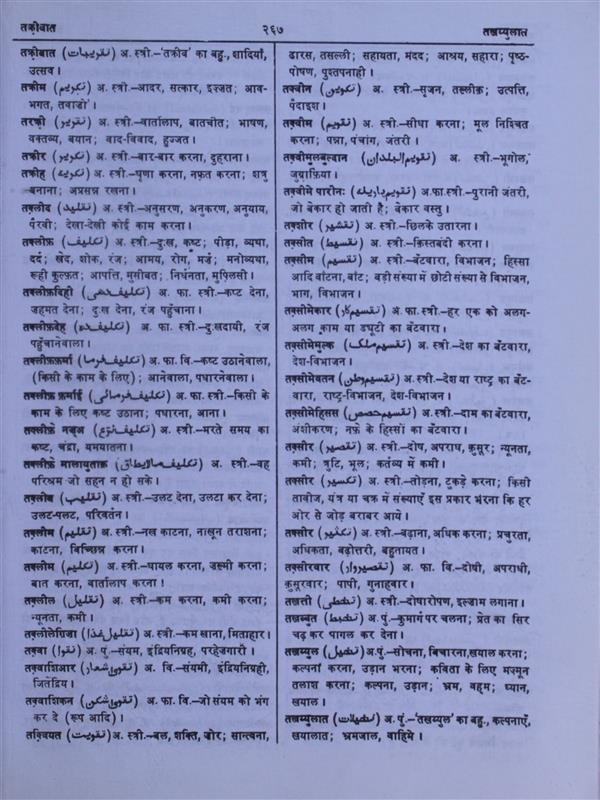 तक़ीबात
२६७
तख़य्युलात
तक़ीबात (تقریبات) अ. स्त्री.–'तक़ीब' का बहु., शादियाँ,
उत्सव।
तक्रीम (تکریم) अ. स्त्री.–आदर, सत्कार, इज़्ज़त; आव-
भगत, तवाज़ो'।
तक़्री (تقریر) अ. स्त्री.–वार्तालाप, बातचीत; भाषण,
वक्तव्य, बयान; वाद-विवाद, हुज्जत।
तक्रीर (تکریر) अ. स्त्री.–बार-बार करना, दुहराना।
तक्रीह (تکریہ) अ. स्त्री.–घृणा करना, नफ़्रत करना; शत्रु
बनाना; अप्रसन्न रखना।
तक़्लीद (تقلید) अ. स्त्री.–अनुसरण, अनुकरण, अनुयाय,
पैरवी; देखा-देखी कोई काम करना।
तक्लीफ़ (تکلیف) अ. स्त्री.–दुःख, कष्ट; पीड़ा, व्यथा,
दर्द; खेद, शोक, रंज; आमय, रोग, मर्ज़; मनोव्यथा,
रूही कुल्फ़त; आपत्ति, मुसीबत; निर्धनता, मुफ़्लिसी।
तक्लीफ़दिही (تکلیف دہی) अ. फा. स्त्री.–कष्ट देना,
जहमत देना; दुःख देना, रंज पहुँचाना।
तक्लीफ़देह (تکلیف دہ) अ. फा. स्त्री.–दुःखदायी, रंज
पहुँचानेवाला।
तक्लीफ़फ़र्मा (تکلیف فرما) अ. फा. वि.–कष्ट उठानेवाला,
(किसी के काम के लिए); आनेवाला, पधारनेवाला।
तक्लीफ़ फ़र्माई (تکلیف فرمائی) अ. फा. स्त्री.–किसी के
काम के लिए कष्ट उठाना; पधारना, आना।
तक्लीफ़े नज़्अ (تکلیف نزع) अ. स्त्री.–मरते समय का
कष्ट, चंद्रा, यमयातना।
तक्लीफ़े मालायुताक़ (تکلیف مالایطاق) अ. स्त्री.–वह
परिश्रम जो सहन न हो सके।
तक़्लीब (تقلیب) अ. स्त्री.–उलट देना, उलटा कर देना;
उलट-पलट, परिवर्तन।
तक़्लीम (تقلیم) अ. स्त्री.–नख काटना, नाखून तराशना;
काटना, विच्छिन्न करना।
तक्लीम (تکلیم) अ. स्त्री.–घायल करना, ज़ख़्मी करना;
बात करना, वार्तालाप करना!
तक़्लील (تقلیل) अ. स्त्री.–कम करना, कमी करना;
न्यूनता, कमी।
तक़्लीलेग़िज़ा (تقلیل غذا) अ. स्त्री.–कम खाना, मिताहार।
तक़्वा (تقوا) अ. पुं.–संयम, इंद्रियनिग्रह, परहेज़गारी।
तक़्वाशिआर (تقوی شعار) अ. वि.–संयमी, इंद्रियनिग्रही,
जितेंद्रिय।
तक़्वाशिकन (تقوی شکن) अ. फा. वि.–जो संयम को भंग
कर दे (रूप आदि)।
तक़्वियत (تقویت) अ. स्त्री.–बल, शक्ति, ज़ोर; सान्त्वना,
ढारस, तसल्ली; सहायता, मदद; आश्रय, सहारा; पृष्ठ-
पोषण, पुश्तपनाही।
तक्वीन (تکوین) अ. स्त्री.–सृजन, तख़्लीक़; उत्पत्ति,
पैदाइश।
तक़्वीम (تقویم) अ. स्त्री.–सीधा करना; मूल निश्चित
करना; पन्ना, पंचांग, जंतरी।
तक़्वीमुलबुल्दान (تقویم البلدان) अ. स्त्री.–भूगोल,
जुग़्राफ़िया।
तक़्वीमे पारीनः (تقویم پارینہ) अ.फा.स्त्री.–पुरानी जंतरी,
जो बेकार हो जाती है; बेकार वस्तु।
तक़्शीर (تقشیر) अ. स्त्री.–छिलके उतारना।
तक़्सीत (تقسیط) अ. स्त्री.–क़िस्तबंदी करना।
तक़्सीम (تقسیم) अ. स्त्री.–बँटवारा, विभाजन; हिस्सा
आदि बाँटना, बाँट; बड़ी संख्या में छोटी संख्या से विभाजन,
भाग, विभाजन।
तक़्सीमेकार (تقسیم کار) अ. फा. स्त्री.–हर एक को अलग-
अलग काम या ड्यूटी का बँटवारा।
तक़्सीमेमुल्क (تقسیم ملک) अ. स्त्री.–देश का बँटवारा,
देश-विभाजन।
तक़्सीमेवतन (تقسیم وطن) अ. स्त्री.–देश या राष्ट्र का बँट-
वारा, राष्ट्र-विभाजन, देश-विभाजन।
तक़्सीमेहिसस (تقسیم حصص) अ. स्त्री.–दाम का बँटवारा,
अंशीकरण; नफ़े के हिस्सों का बँटवारा।
तक़्सीर (تقصیر) अ. स्त्री.–दोष, अपराध, क़ुसूर; न्यूनता,
कमी; त्रुटि, भूल; कर्तव्य में कमी।
तक्सीर (تکسیر) अ. स्त्री.–तोड़ना, टुकड़े करना; किसी
तावीज़, यंत्र या चक्र में संख्याएँ इस प्रकार भरना कि हर
ओर से जोड़ बराबर आये।
तक्सीर (تکثیر) अ. स्त्री.–बढ़ाना, अधिक करना; प्रचुरता,
अधिकता, बढ़ोत्तरी, बहुतायत।
तक़्सीरवार (تقصیروار) अ. फा. वि.–दोषी, अपराधी,
क़ुसूरवार; पापी, गुनाहगार।
तख़त्ती (تخطی) अ. स्त्री.–दोषारोपण, इल्ज़ाम लगाना।
तख़ब्बुत (تخبط) अ. पुं.–कुमार्ग पर चलना; प्रेत का सिर
चढ़ कर पागल कर देना।
तख़य्युल (تخیل) अ.पुं.–सोचना, विचारना, ख़याल करना;
कल्पना करना, उड़ान भरना; कविता के लिए मज़्मून
तलाश करना; कल्पना, उड़ान; भ्रम, वहम; ध्यान,
ख़याल।
तख़य्युलात (تخیلات) अ. पुं.–'तख़य्युल' का बहु., कल्पनाएँ,
ख़यालात; भ्रमजाल, वाहिमे।